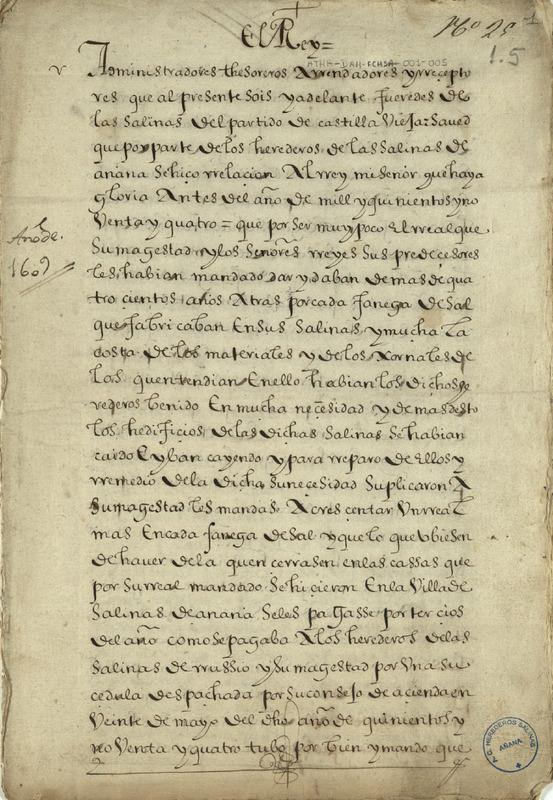 El Rey =
Nº 25
1.5
ATHA-DAH-FCHSA-001-005
Administradores thesoreros Arrendadores y rrecepto
res que al presente sois y adelante fueredes de
las Salinas del partido de castilla Vieja: Saued
que por parte de los herederos de las Salinas de
añana Se hiço rrelacion Al rrey mi señor que haya
gloria Antes del año de mill y quinientos y no
Venta y quatro = que por ser muy poco El rreal que
Su magestad y los Señores rreyes Sus predecesores
les habian mandado dar y daban de mas de qua
tro cientos años A tras por cada fanega de Sal
que fabricaban En sus Salinas y mucha la
costa de los materiales y de los Xornales de
los que entendian En ello habian los dichos he
rederos benido En mucha neçesidad y demas desto
los hedificios de las dichas Salinas Se habian
caido E yban cayendo y para rreparo de Ellos y
rremedio de la dicha Su necesidad Suplicaron A
Su magestad les mandas Acrescentar Un rreal
mas En cada fanega de Sal y que lo que ubiesen
de haver de la que encerrasen en las cassas que
por Su real mandado Se hicieron En la Villa de
Salinas de anana Se les pagasse por tercios
del año como Se pagaba A los herederos de las
Salinas de rrussio y Su magestad por Una Su
cedula despachada por Su consejo de acienda en
Veinte de mayo del dho año de quinientos y
no Venta y quatro tubo por bien y mando que
Año de.
1609
A.G. HEREDEROS SALINAS
AÑANA